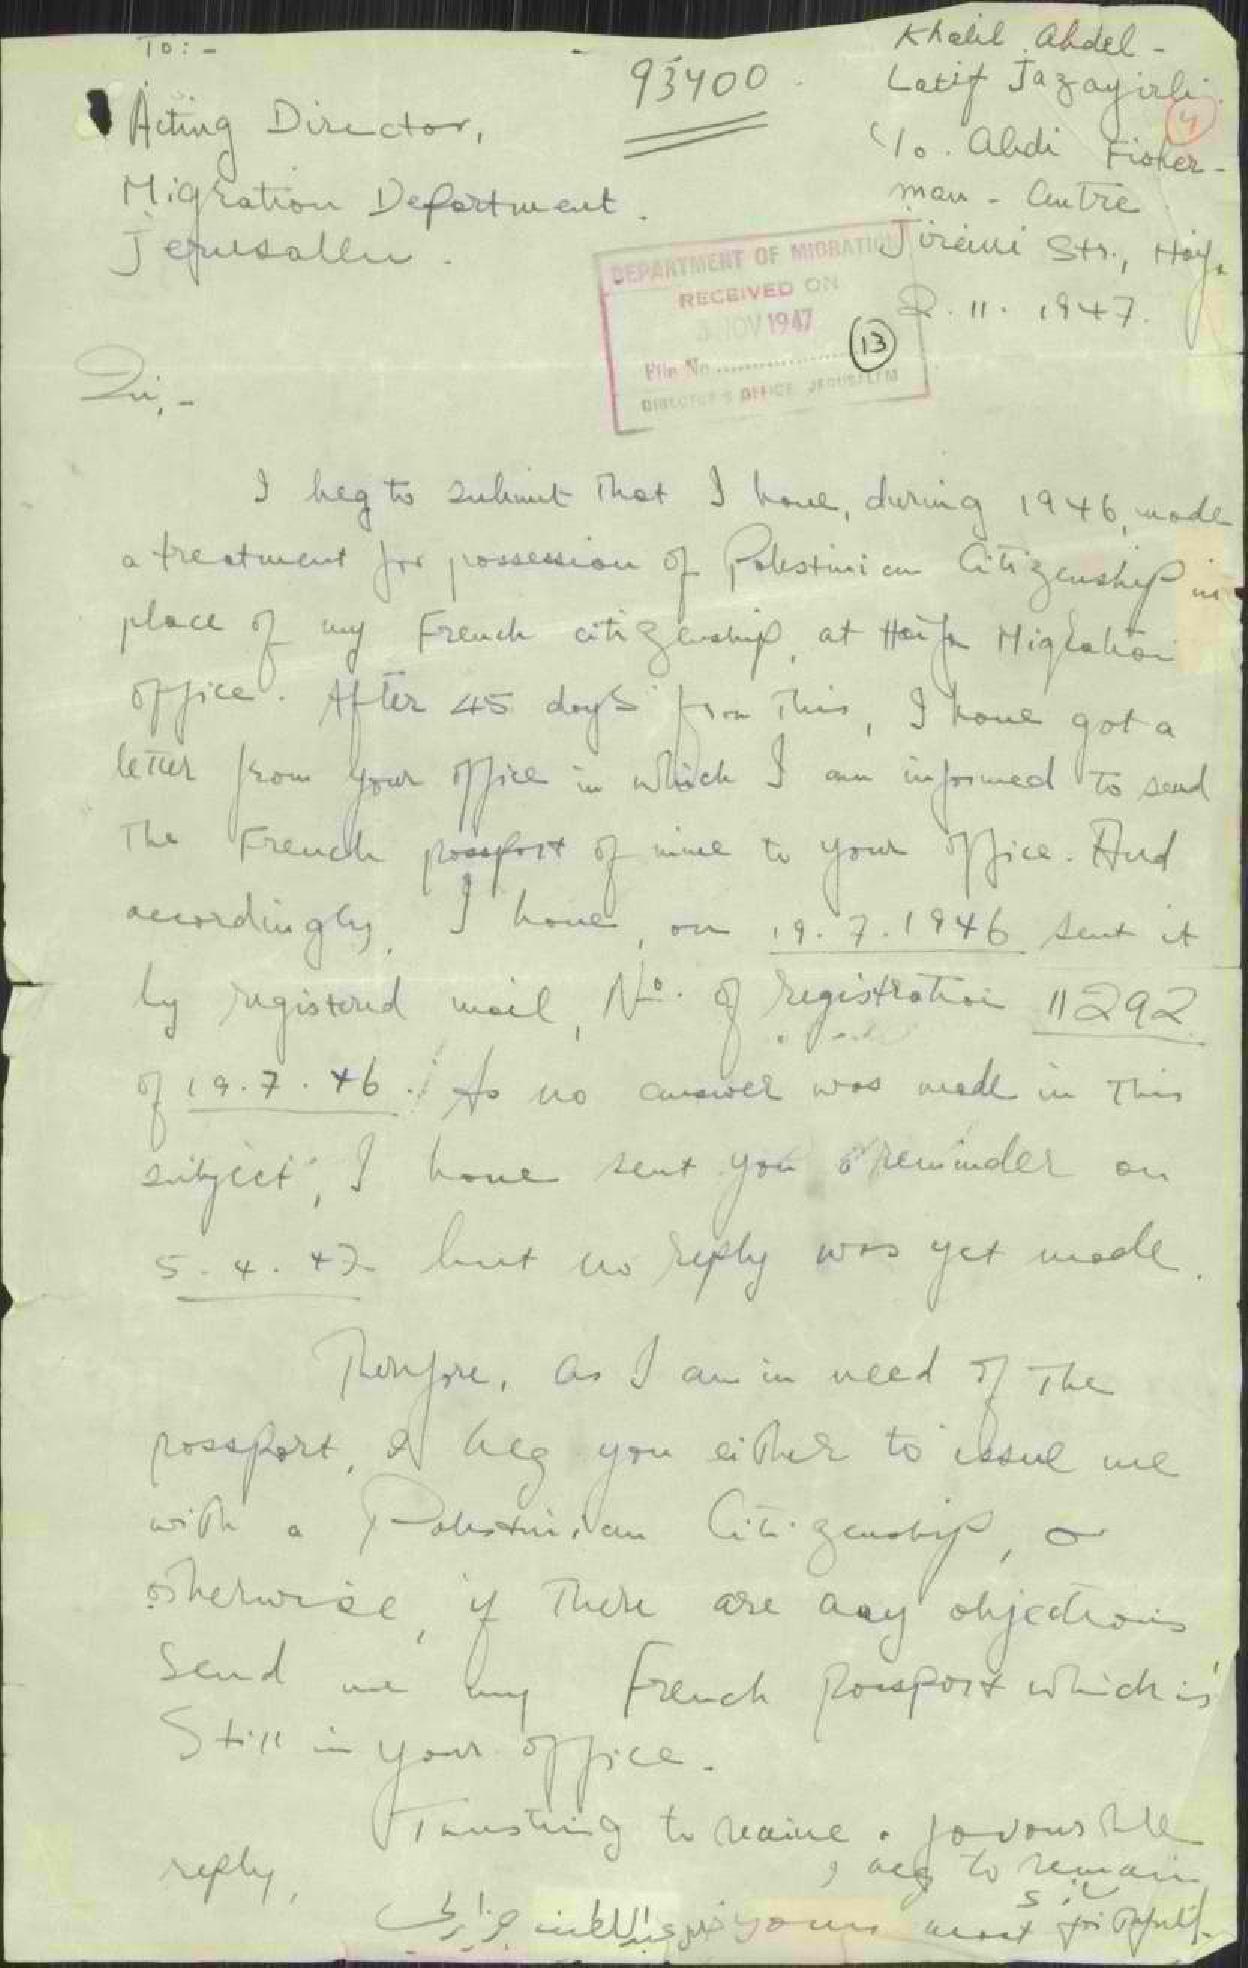 To:-
93400
Khalil Abdel-
Latif Jazayirli.
4
Acting Director,
c/o. Abdi Fisher-
Migration Department.
man - Centre
Jerusallem.
Str., Haifa
DEPARTMENT OF MIGRATION
RECEIVED ON
3 NOV 1947
2.11.1947.
File No ..................
13
DIRECTOR'S OFFICE JERUSALEM
Sir,-
I beg to submit that I have, during 1946, made
a treatment for possession of Palestinian Citizenship in
place of my French citizenship, at Haifa Migration
office. After 45 days from this, I have got a
letter from your office in which I am informed to send
the French passport of mine to your office. And
accordingly, I have, on 19.7.1946 sent it
by registered mail, No. of registration 11292
of 19.7.46. As no answer was made in this
subject, I have sent you a reminder on
5.4.47 but no reply was yet made.
Therefore, as I am in need of the
passport, I beg you either to issue me
with a Palestinian Citizenship, or
otherwise, if there are any objections
send me my French passport which is
still in your office.
Trusting to receive a favourable
reply, I beg to remain
Sir
yours most faithfully.
عبد اللطيف جزايرلي